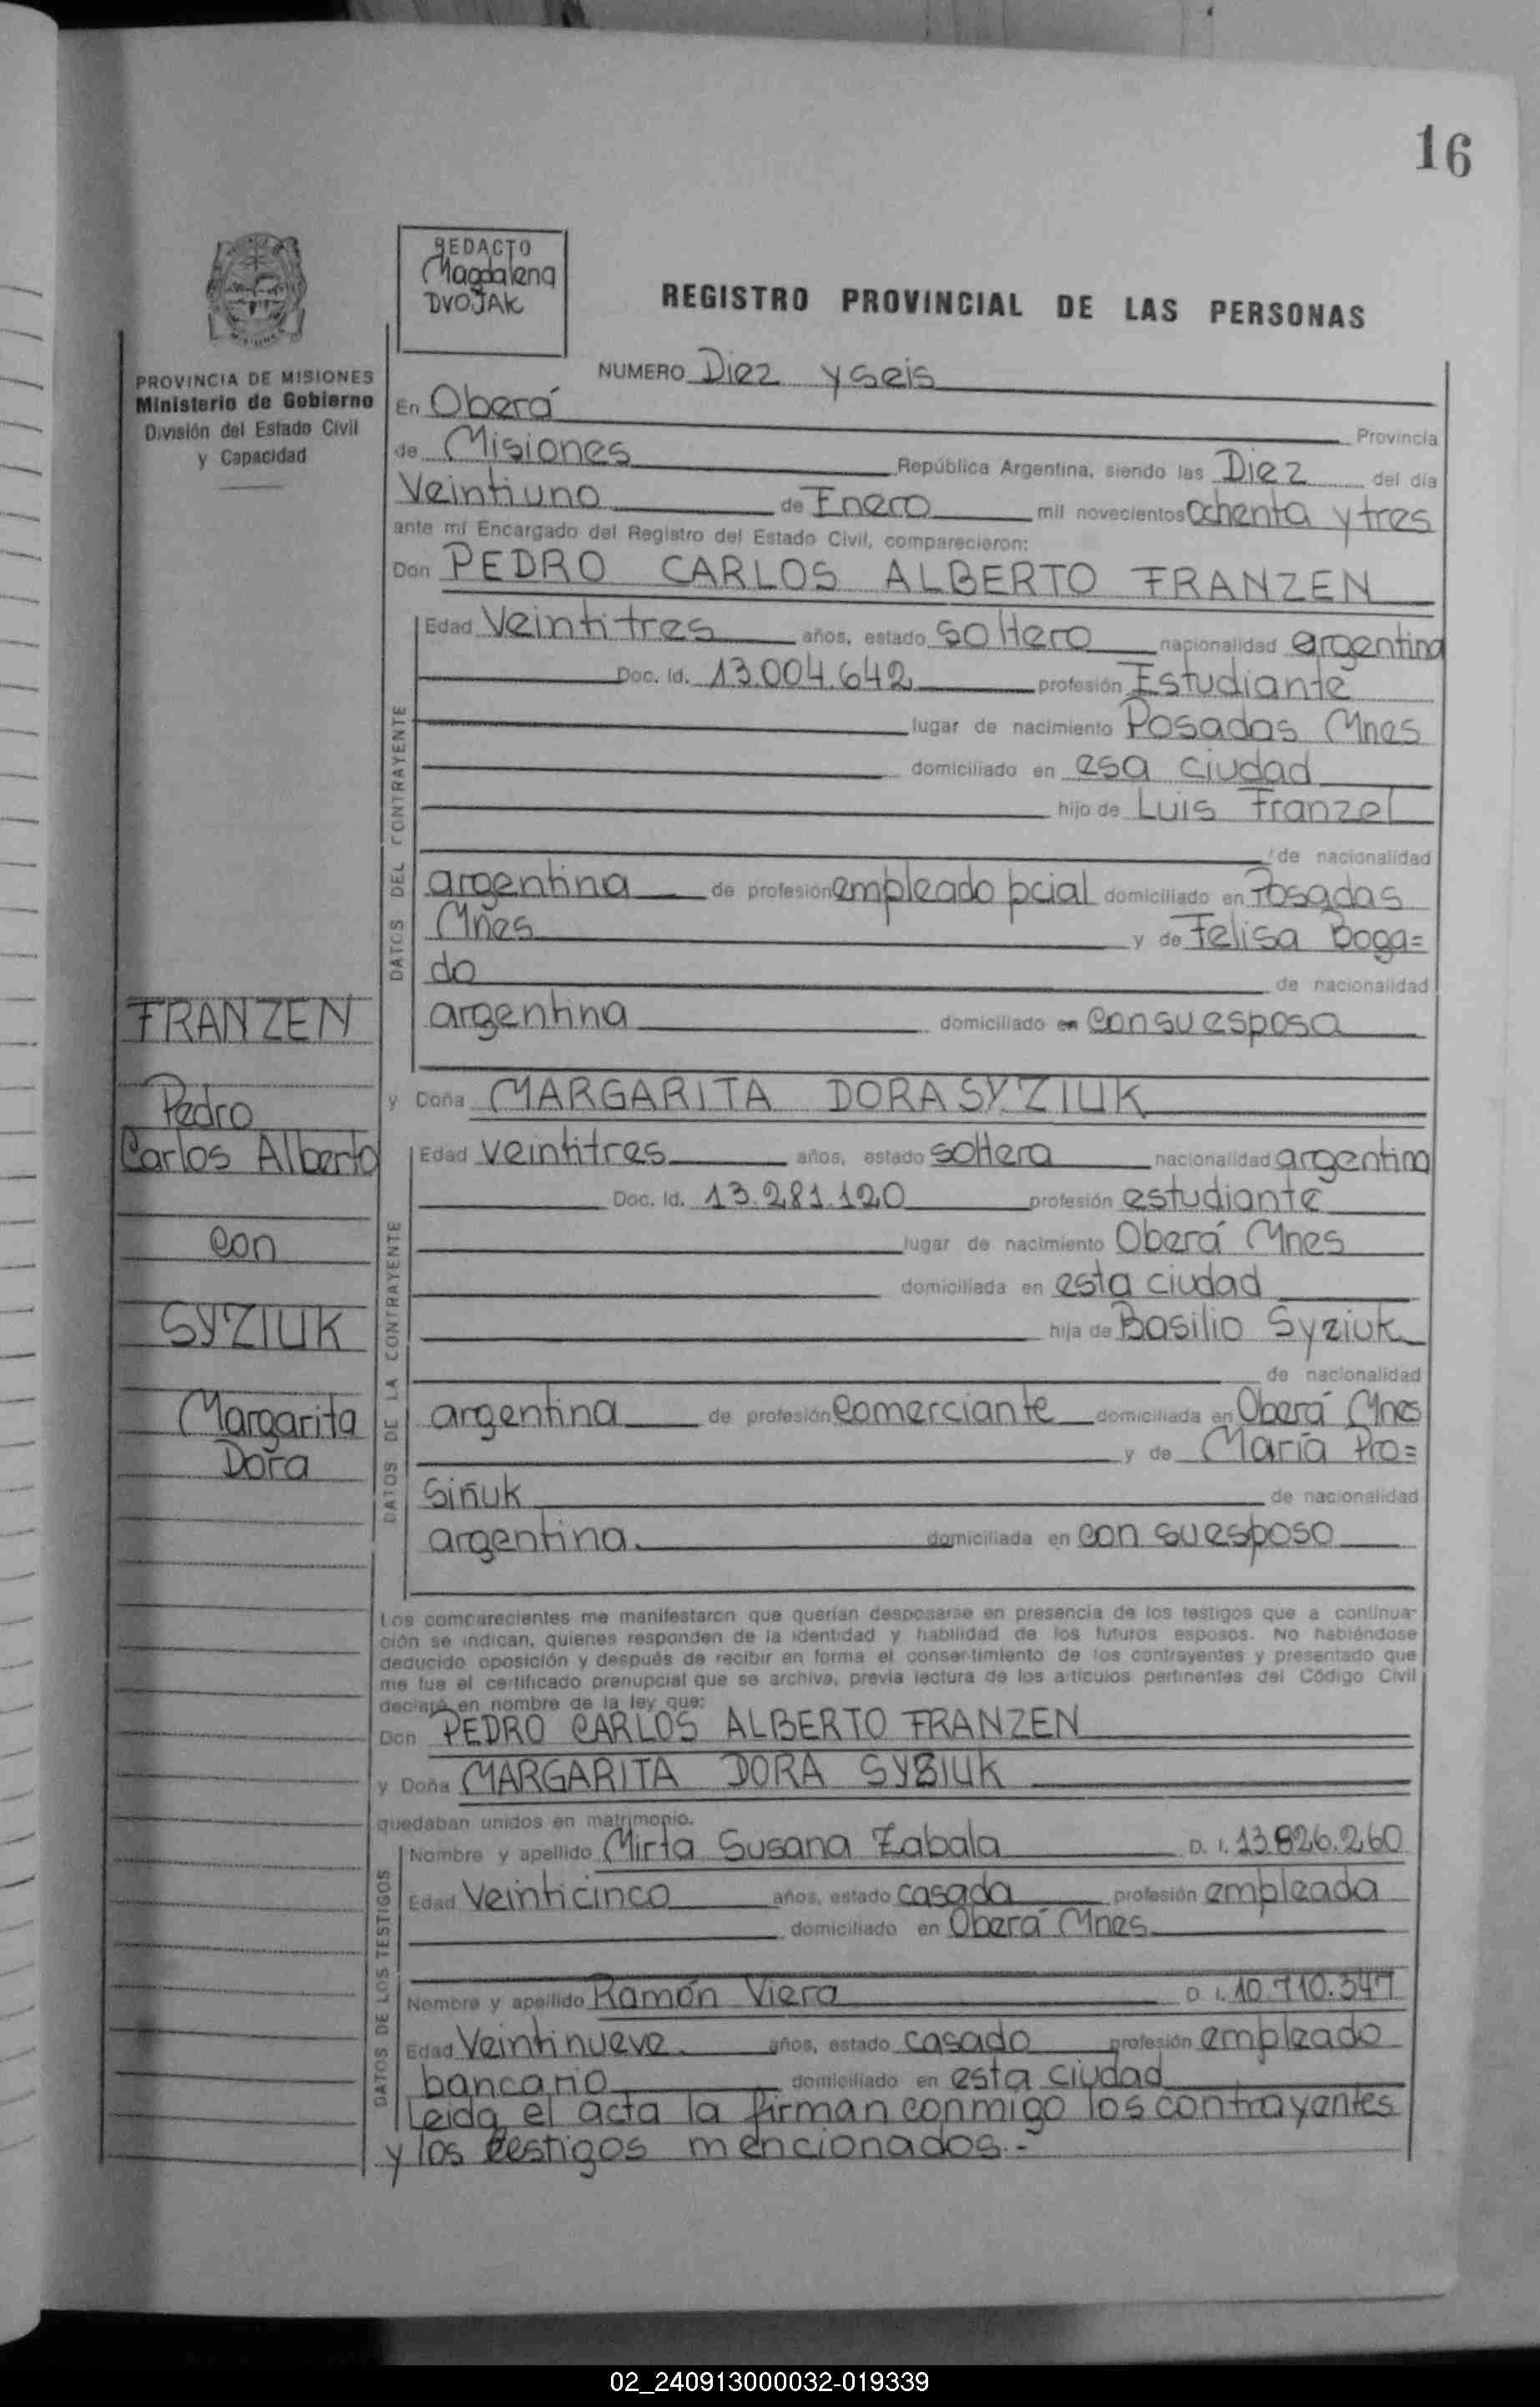 16
REDACTO
Magdalena
DVOJAK
REGISTRO PROVINCIAL DE LAS PERSONAS
PROVINCIA DE MISIONES
Ministerio de Gobierno
División del Estado Civil
y Capacidad
NUMERO Diez y seis
En Oberá Provincia
de Misiones República Argentina, siendo las Diez del día
Veintiuno de Enero mil novecientos Ochenta y tres
ante mí Encargado del Registro del Estado Civil, comparecieron:
Don PEDRO CARLOS ALBERTO FRANZEN
DATOS DEL CONTRAYENTE
Edad Veintitres años, estado soltero nacionalidad argentina
Doc. Id. 13.004.642 profesión Estudiante
lugar de nacimiento Posadas Mnes
domiciliado en esa ciudad
hijo de Luis Franzel
de nacionalidad
argentina de profesión empleado pcial domiciliado en Posadas
Mñes y de Felisa Boga=
do de nacionalidad
argentina domiciliado en con su esposa
FRANZEN
Pedro
Carlos Alberto
con
SYZIUK
Margarita
Dora
y Doña MARGARITA DORA SYZIUK
DATOS DE LA CONTRAYENTE
Edad veintitres años, estado soltera nacionalidad argentina
Doc. Id. 13.281.120 profesión estudiante
lugar de nacimiento Oberá Mnes
domiciliada en esta ciudad
hija de Basilio Syziuk
de nacionalidad
argentina de profesión comerciante domiciliada en Oberá Mnes
y de María Pro=
siñuk de nacionalidad
argentina. domiciliada en con su esposo
Los comparecientes me manifestaron que querían desposarse en presencia de los testigos que a continua-
ción se indican, quienes responden de la identidad y habilidad de los futuros esposos. No habiéndose
deducido oposición y después de recibir en forma el consentimiento de los contrayentes y presentado que
me fue el certificado prenupcial que se archiva, previa lectura de los artículos pertinentes del Código Civil
declaré en nombre de la ley que:
Don PEDRO CARLOS ALBERTO FRANZEN
y Doña MARGARITA DORA SYZIUK
quedaban unidos en matrimonio.
DATOS DE LOS TESTIGOS
Nombre y apellido Mirta Susana Zabala D. I. 13.826.260
Edad Veinticinco años, estado casada profesión empleada
domiciliado en Oberá Mnes
Nombre y apellido Ramón Viera D. I. 10.710.547
Edad Veintinueve. años, estado casado profesión empleado
bancario domiciliado en esta ciudad
Leida el acta la firman conmigo los contrayentes
y los testigos mencionados.-
02_240913000032-019339